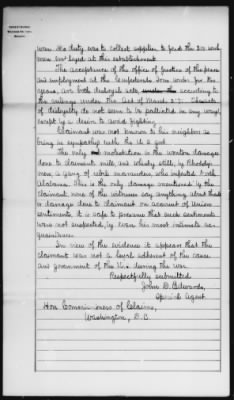 war. His duty was to collect supplies to feed the 300 men
were employed at this establishment.
The acceptance of the office of Justice of the peace
and employment at the Confederate Iron works for the
years, are both disloyal acts, according to
the rulings under the Act of March 3, 71. Claimants
of disloyalty do not seem to be palliated in any way,
except by a desire to avoid fighting.
Claimant was not known to his neighbors as
being in sympathy with the U.S. govt.
The only molestation is the wanton damage
done to claimants mill and whisky still, by Rhoddy's
men, a gang of rebel marauders, who infested North
Alabama. This is the only damage mentioned by the
claimant, none of the witnesses say anything about that
or damage done to claimant on account of Union
sentiments, it is safe to presume that such sentiments
was not suspected, by even his most intimate ac-
quaintances.
In view of the evidence it appears that the
claimant was not a loyal adherent of the cause
and government of the U.S. during the war.
Respectfully submitted
John D. Edwards,
Special Agent
Hon Commissioners of Claims,
Washington, D.C.